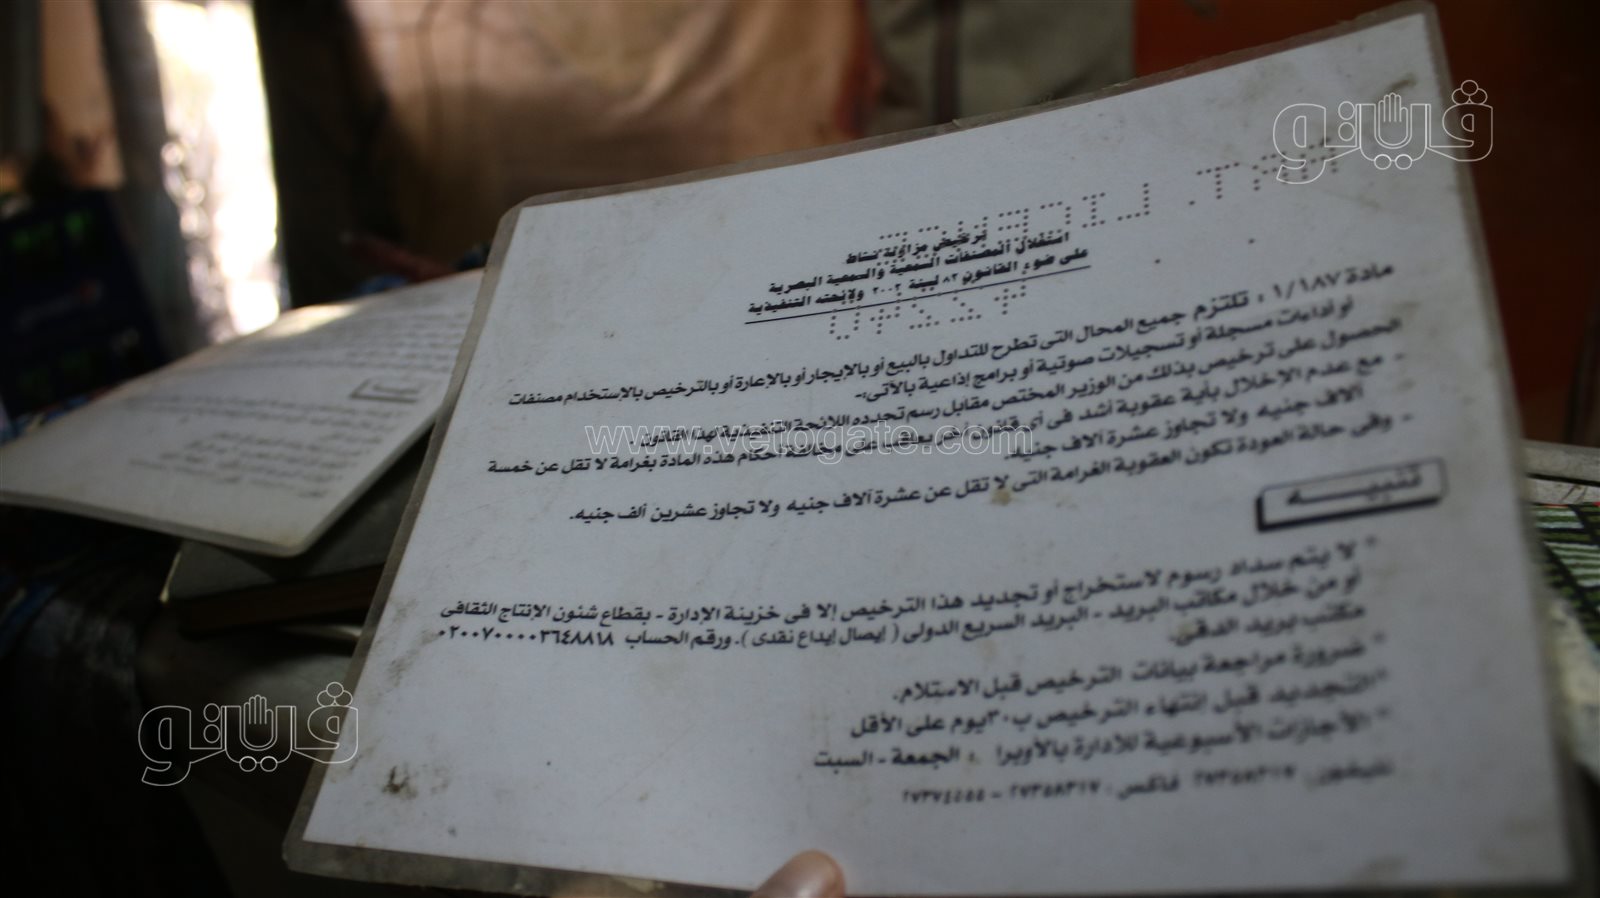 فيتو
ART. LICENSE
ترخيص مزاولة نشاط
استغلال المصنفات السمعية والسمعية البصرية
على ضوء القانون ٨٢ لسنة ٢٠٠٢ ولائحته التنفيذية
مادة ١/١٨٧ : تلتزم جميع المحال التى تطرح للتداول بالبيع أو بالإيجار أو بالإعارة أو بالترخيص بالإستخدام مصنفات
أو أداءات مسجلة أو تسجيلات صوتية أو برامج إذاعية بالآتى:-
الحصول على ترخيص بذلك من الوزير المختص مقابل رسم تحدده اللائحة التنفيذية لهذا القانون.
- مع عدم الإخلال بأية عقوبة أشد فى أى قانون آخر يعاقب على مخالفة أحكام هذه المادة بغرامة لا تقل عن خمسة
آلاف جنيه ولا تجاوز عشرة آلاف جنيه.
- وفى حالة العودة تكون العقوبة الغرامة التى لا تقل عن عشرة آلاف جنيه ولا تجاوز عشرين ألف جنيه.
www.vetogate.com
تنبيه
* لا يتم سداد رسوم لاستخراج أو تجديد هذا الترخيص إلا فى خزينة الإدارة - بقطاع شئون الإنتاج الثقافى
أو من خلال مكاتب البريد - البريد السريع الدولى ( إيصال إيداع نقدى ). ورقم الحساب ٠٢٠٠٧٠٠٠٠٣٦٤٨٨١٨
مكتب بريد الدقى.
* ضرورة مراجعة بيانات الترخيص قبل الاستلام.
* التجديد قبل إنتهاء الترخيص ب ٣٠ يوم على الأقل
* الأجازات الأسبوعية للإدارة بالأوبرا : الجمعة - السبت
تليفون: ٢٧٣٥٨٣١٧ فاكس : ٢٧٣٥٨٣١٧ - ٢٧٣٧٤٥٥٥
فيتو